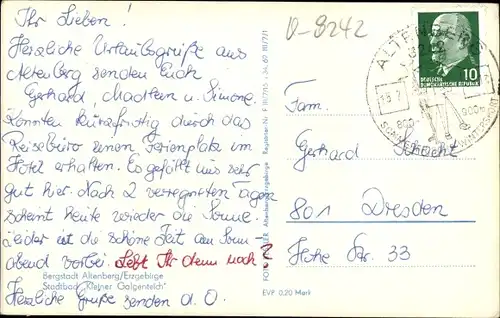 Ihr Lieben!
Herzliche Urlaubsgrüße aus
Altenberg senden Euch
Gerhard, u. Simone.
Konnten kurzfristig durch das
Reisebüro einen Ferienplatz im
Hotel erhalten. Es gefällt uns sehr
gut hier. Nach 2 verregneten Tagen
scheint heute wieder die Sonne.
Leider ist die schöne Zeit am Sonn
abend vorbei. Lebt Ihr denn noch?
Bergstadt Altenberg/Erzgebirge
Stadtbad "Kleiner Galgenteich"
Herzliche Grüße senden d. O.
Altenberg/Erzgebirge
EVP 0,20 Mark
D-8242
ALTENBERG
8242
800-
900m
DEUTSCHE
DEMOKRATISCHE REPUBLIK
10
Fam.
Gerhard Schacht
801 Dresden
Hohe Str. 33